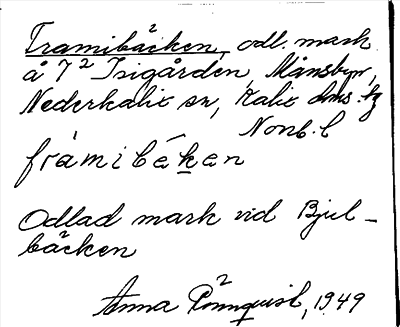 Framibäcken, odl. mark
å 7² Isigården, Månsbyn,
Nederkalix sn, Kalix dms. tg
Nonb. l
fràmibéken
Odlad mark vid Bjul-
bäcken
Anna Rönnquist, 1949